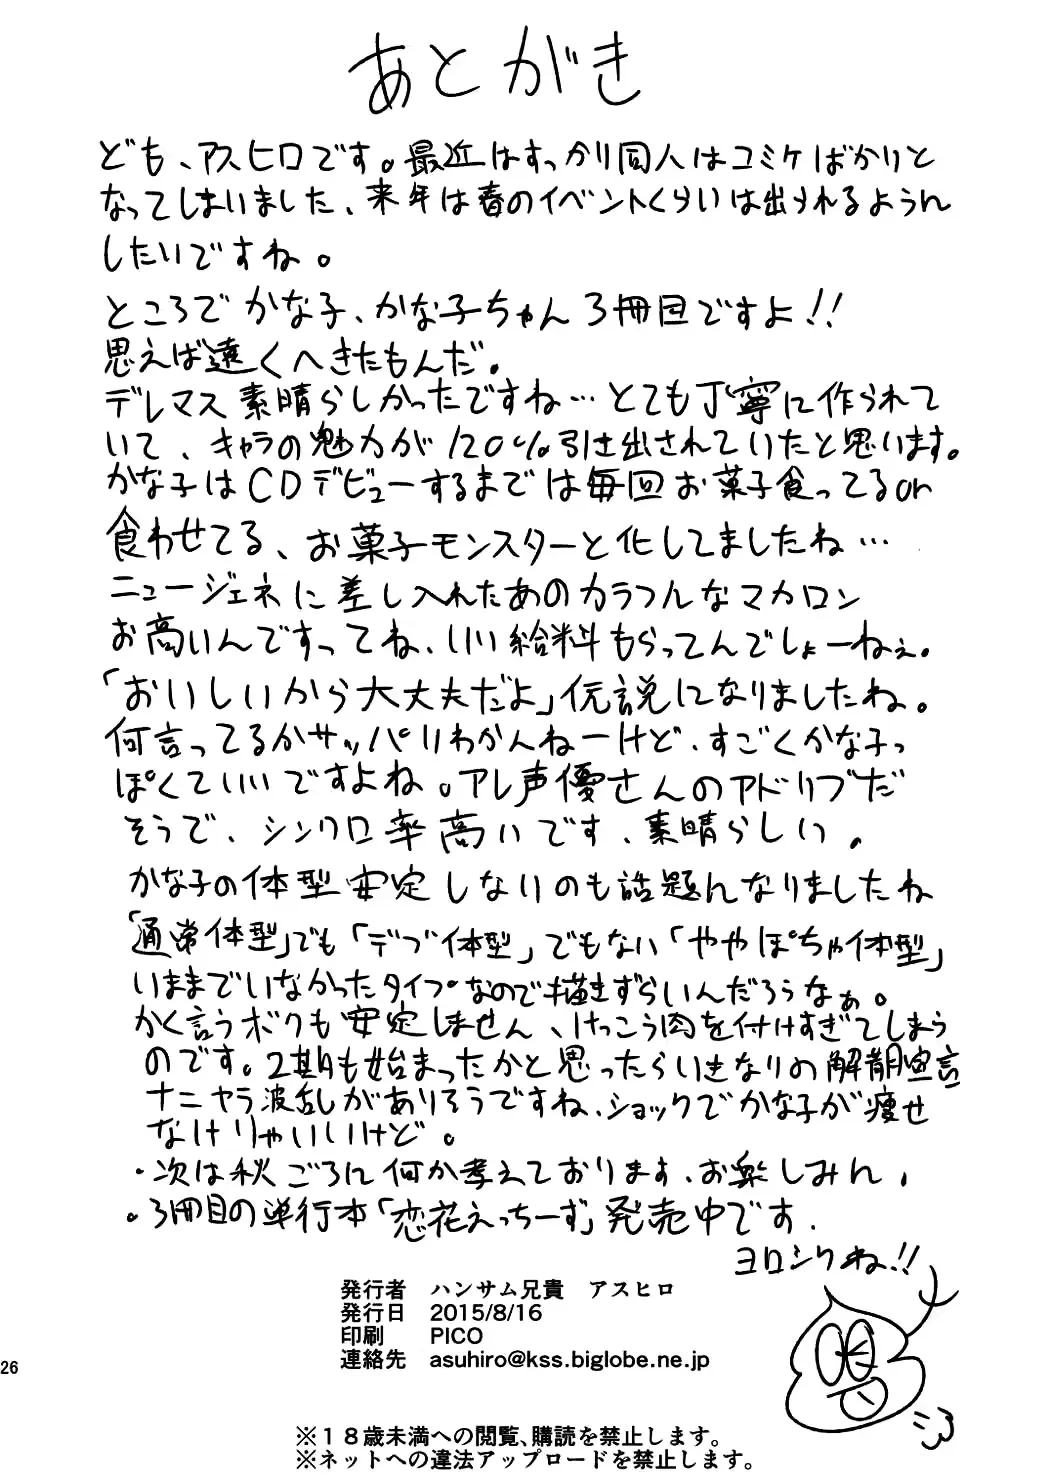 あとがき
ども、アスヒロです。最近はすっかり同人はコミケばかりと
なってしまいました、来年は春のイベントくらいは出られるように
したいですね。
ところでかな子、かな子ちゃん3冊目ですよ!!
思えば遠くへきたもんだ。
デレマス素晴らしかったですね…とても丁寧に作られて
いて、キャラの魅力が120%引き出されていたと思います。
かな子はCDデビューするまでは毎回お菓子食ってるor
食わせてる、お菓子モンスターと化してましたね…
ニュージェネに差し入れたあのカラフルなマカロン
お高いんですってね、いい給料もらってんでしょーねぇ。
「おいしいから大丈夫だよ」伝説になりましたね。
何言ってるかサッパリわかんねーけど、すごくかな子っ
ぽくていいですよね。アレ声優さんのアドリブだ
そうで、シンクロ率高いです、素晴らしい。
かな子の体型安定しないのも話題になりましたね
「通常体型」でも「デブ体型」でもない「ややぽちゃ体型」
いままでいなかったタイプなので描きずらいんだろうなぁ。
かく言うボクも安定しません、けっこう肉を付けすぎてしまう
のです。2期も始まったかと思ったらいきなりの解散宣言
ナニヤラ波乱がありそうですね、ショックでかな子が痩せ
なけりゃいいけど。
・次は秋ごろに何か考えております、お楽しみに、
・3冊目の単行本「恋花えっちーず」発売中です.
ヨロシクね!!
発行者 ハンサム兄貴 アスヒロ
発行日 2015/8/16
印刷 PICO
連絡先 asuhiro@kss.biglobe.ne.jp
26
※18歳未満への閲覧、購読を禁止します。
※ネットへの違法アップロードを禁止します。